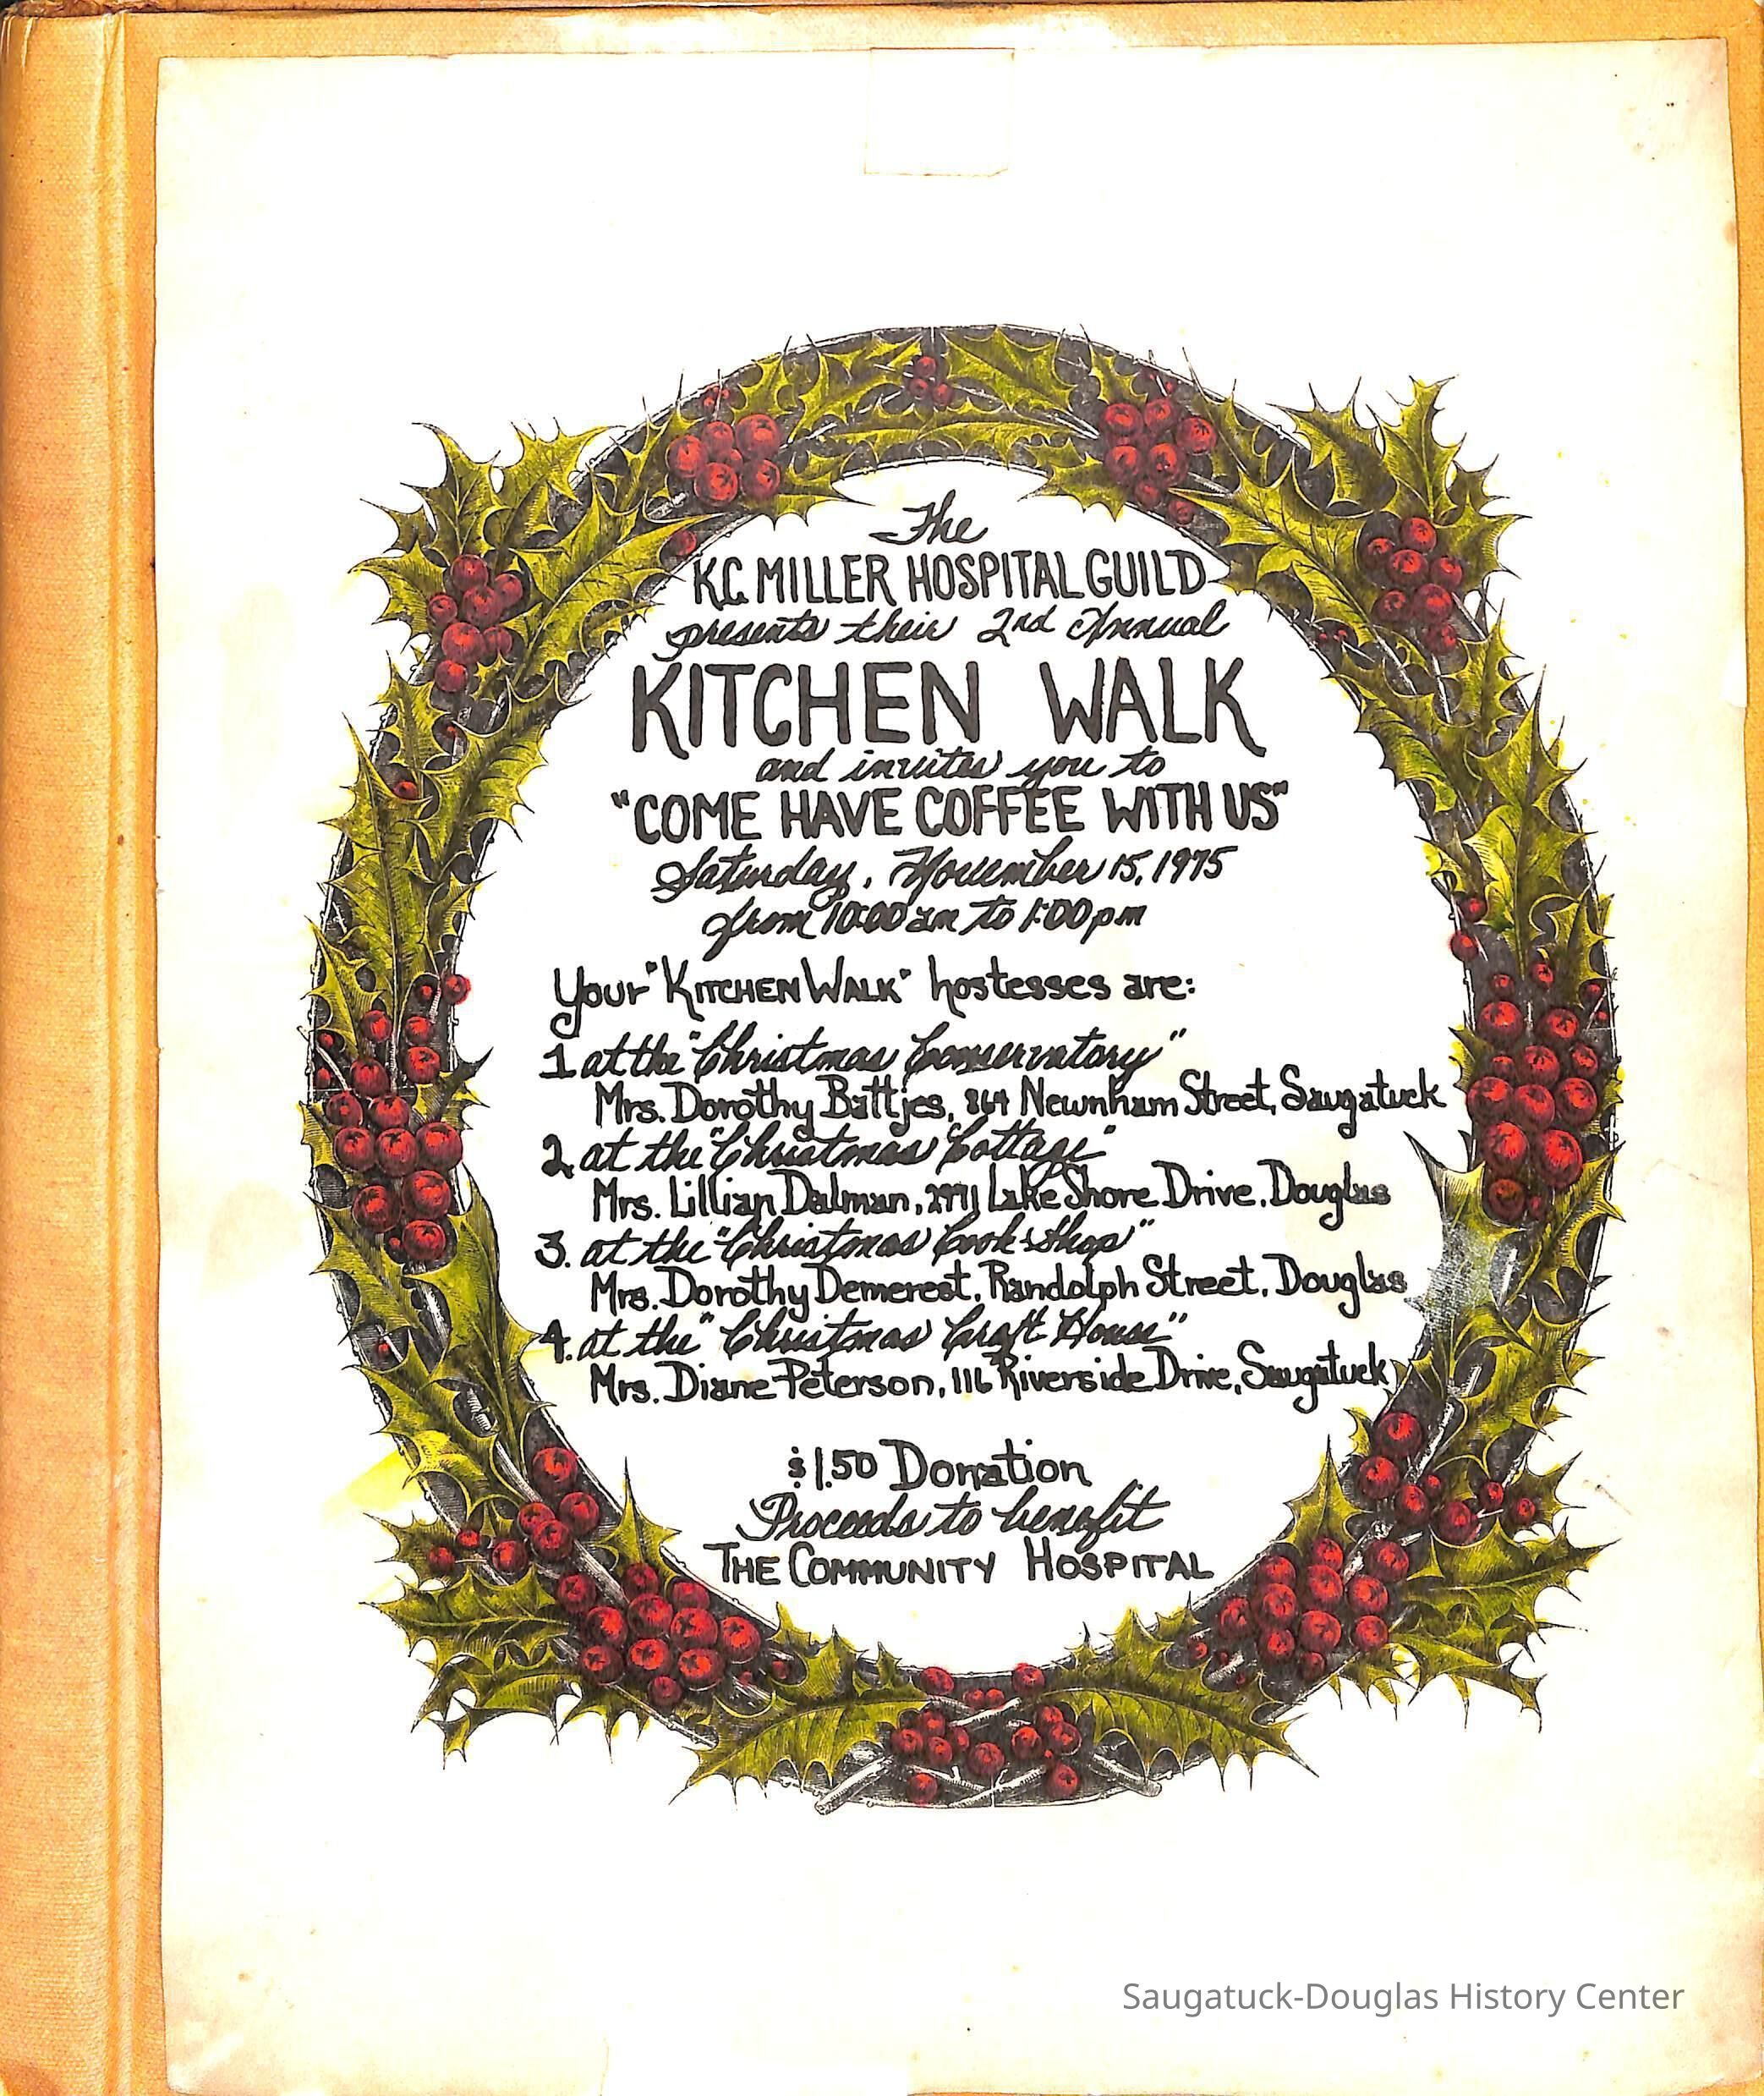 The
K.C. MILLER HOSPITAL GUILD
presents their 2nd Annual
KITCHEN WALK
and invites you to
"COME HAVE COFFEE WITH US"
Saturday, November 15, 1975
from 10:00 am to 1:00 pm
Your "KITCHEN WALK" hostesses are:
1 at the "Christmas Conservatory"
Mrs. Dorothy Battjes, 864 Newnham Street, Saugatuck
2. at the "Christmas Cottage"
Mrs. Lillian Dalman, 2971 Lake Shore Drive, Douglas
3. at the "Christmas Cook-Shop"
Mrs. Dorothy Demerest, Randolph Street, Douglas
4. at the "Christmas Craft House"
Mrs. Diane Peterson, 116 Riverside Drive, Saugatuck
$1.50 Donation
Proceeds to benefit
THE COMMUNITY HOSPITAL
Saugatuck-Douglas History Center